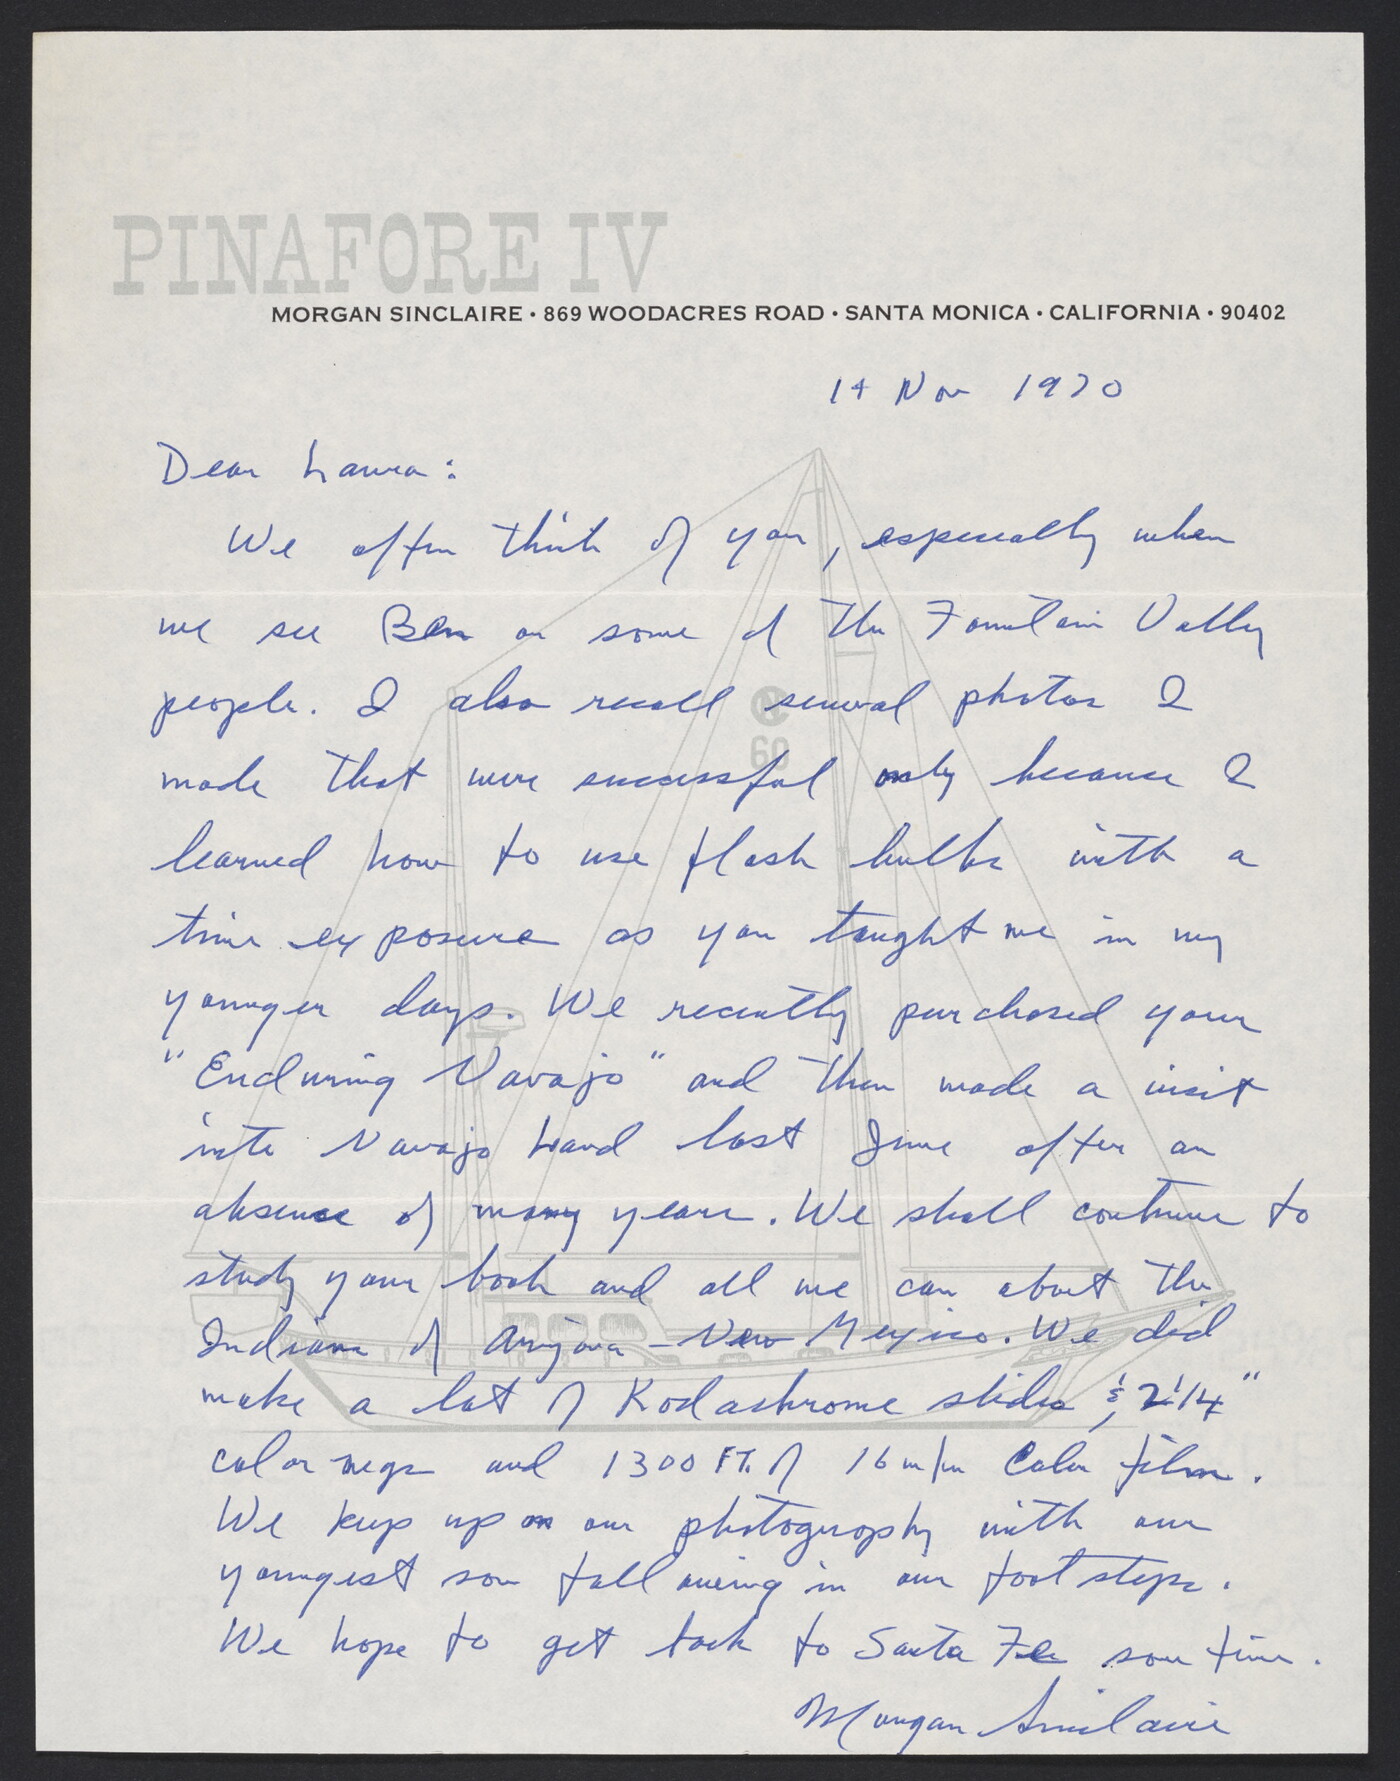 PINAFORE IV
MORGAN SINCLAIRE • 869 WOODACRES ROAD • SANTA MONICA • CALIFORNIA • 90402
14 Nov 1970
Dear Laura:
We often think of you, especially when
we see Ben or some of the Fountain Valley
people. I also recall several photos I
made that were successful only because I
learned how to use flash bulbs with a
time exposure as you taught me in my
younger days. We recently purchased your
"Enduring Navajo" and then made a visit
into Navajo Land last June after an
absence of many years. We shall continue to
study your book and all we can about the
Indians of Arizona - New Mexico. We did
make a lot of Kodachrome slides, & 2 1/4"
color negs and 1300 FT. of 16 m/m Color film.
We keep up on our photography with our
youngest son following in our footsteps.
We hope to get back to Santa Fe some time.
Morgan Sinclaire
N
60